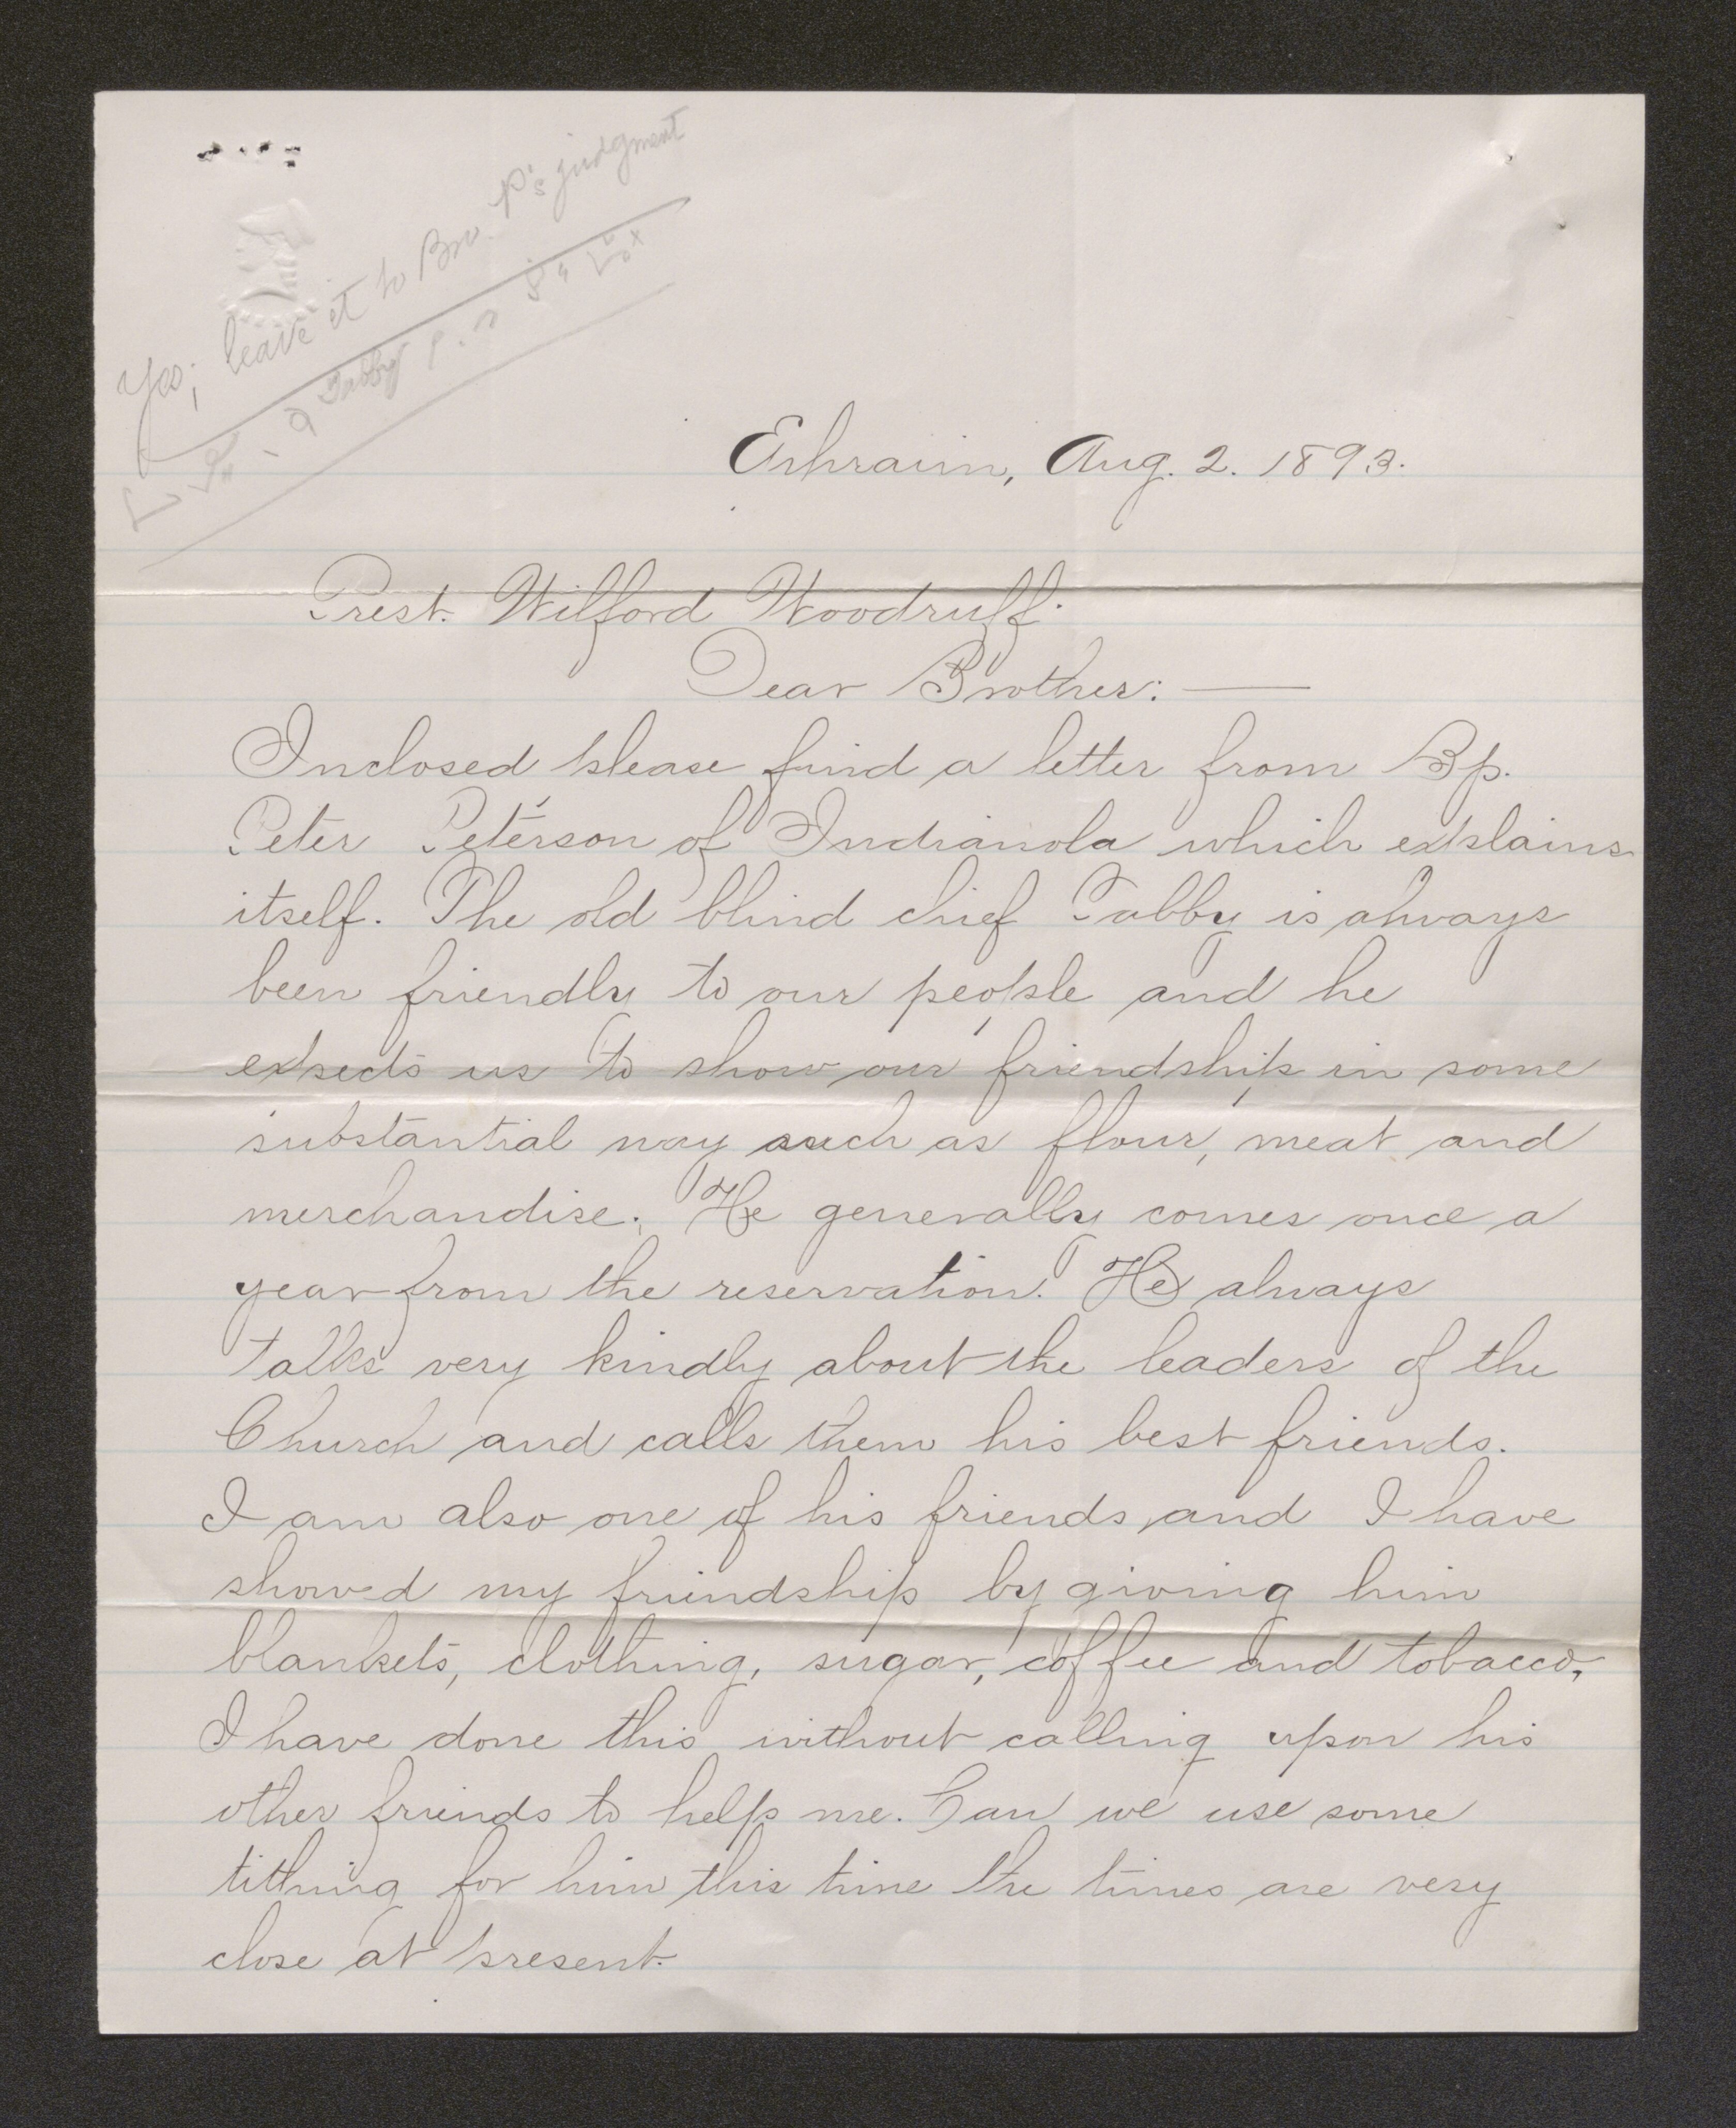 Yes; leave it to Bro. P's judgment
Tabby
Ephraim, Aug. 2. 1893.
Prest. Wilford Woodruff.
Dear Brother: —
Inclosed please find a letter from Bp.
Peter Peterson of Indianola which explains
itself. The old blind chief Tabby is always
been friendly to our people and he
expects us to show our friendship in some
substantial way such as flour, meat and
merchandise. He generally comes once a
year from the reservation. He always
talks very kindly about the leaders of the
Church and calls them his best friends.
I am also one of his friends and I have
showed my friendship by giving him
blankets, clothing, sugar, coffee and tobacco,
I have done this without calling upon his
other friends to help me. Can we use some
tithing for him this time the times are very
close at present.